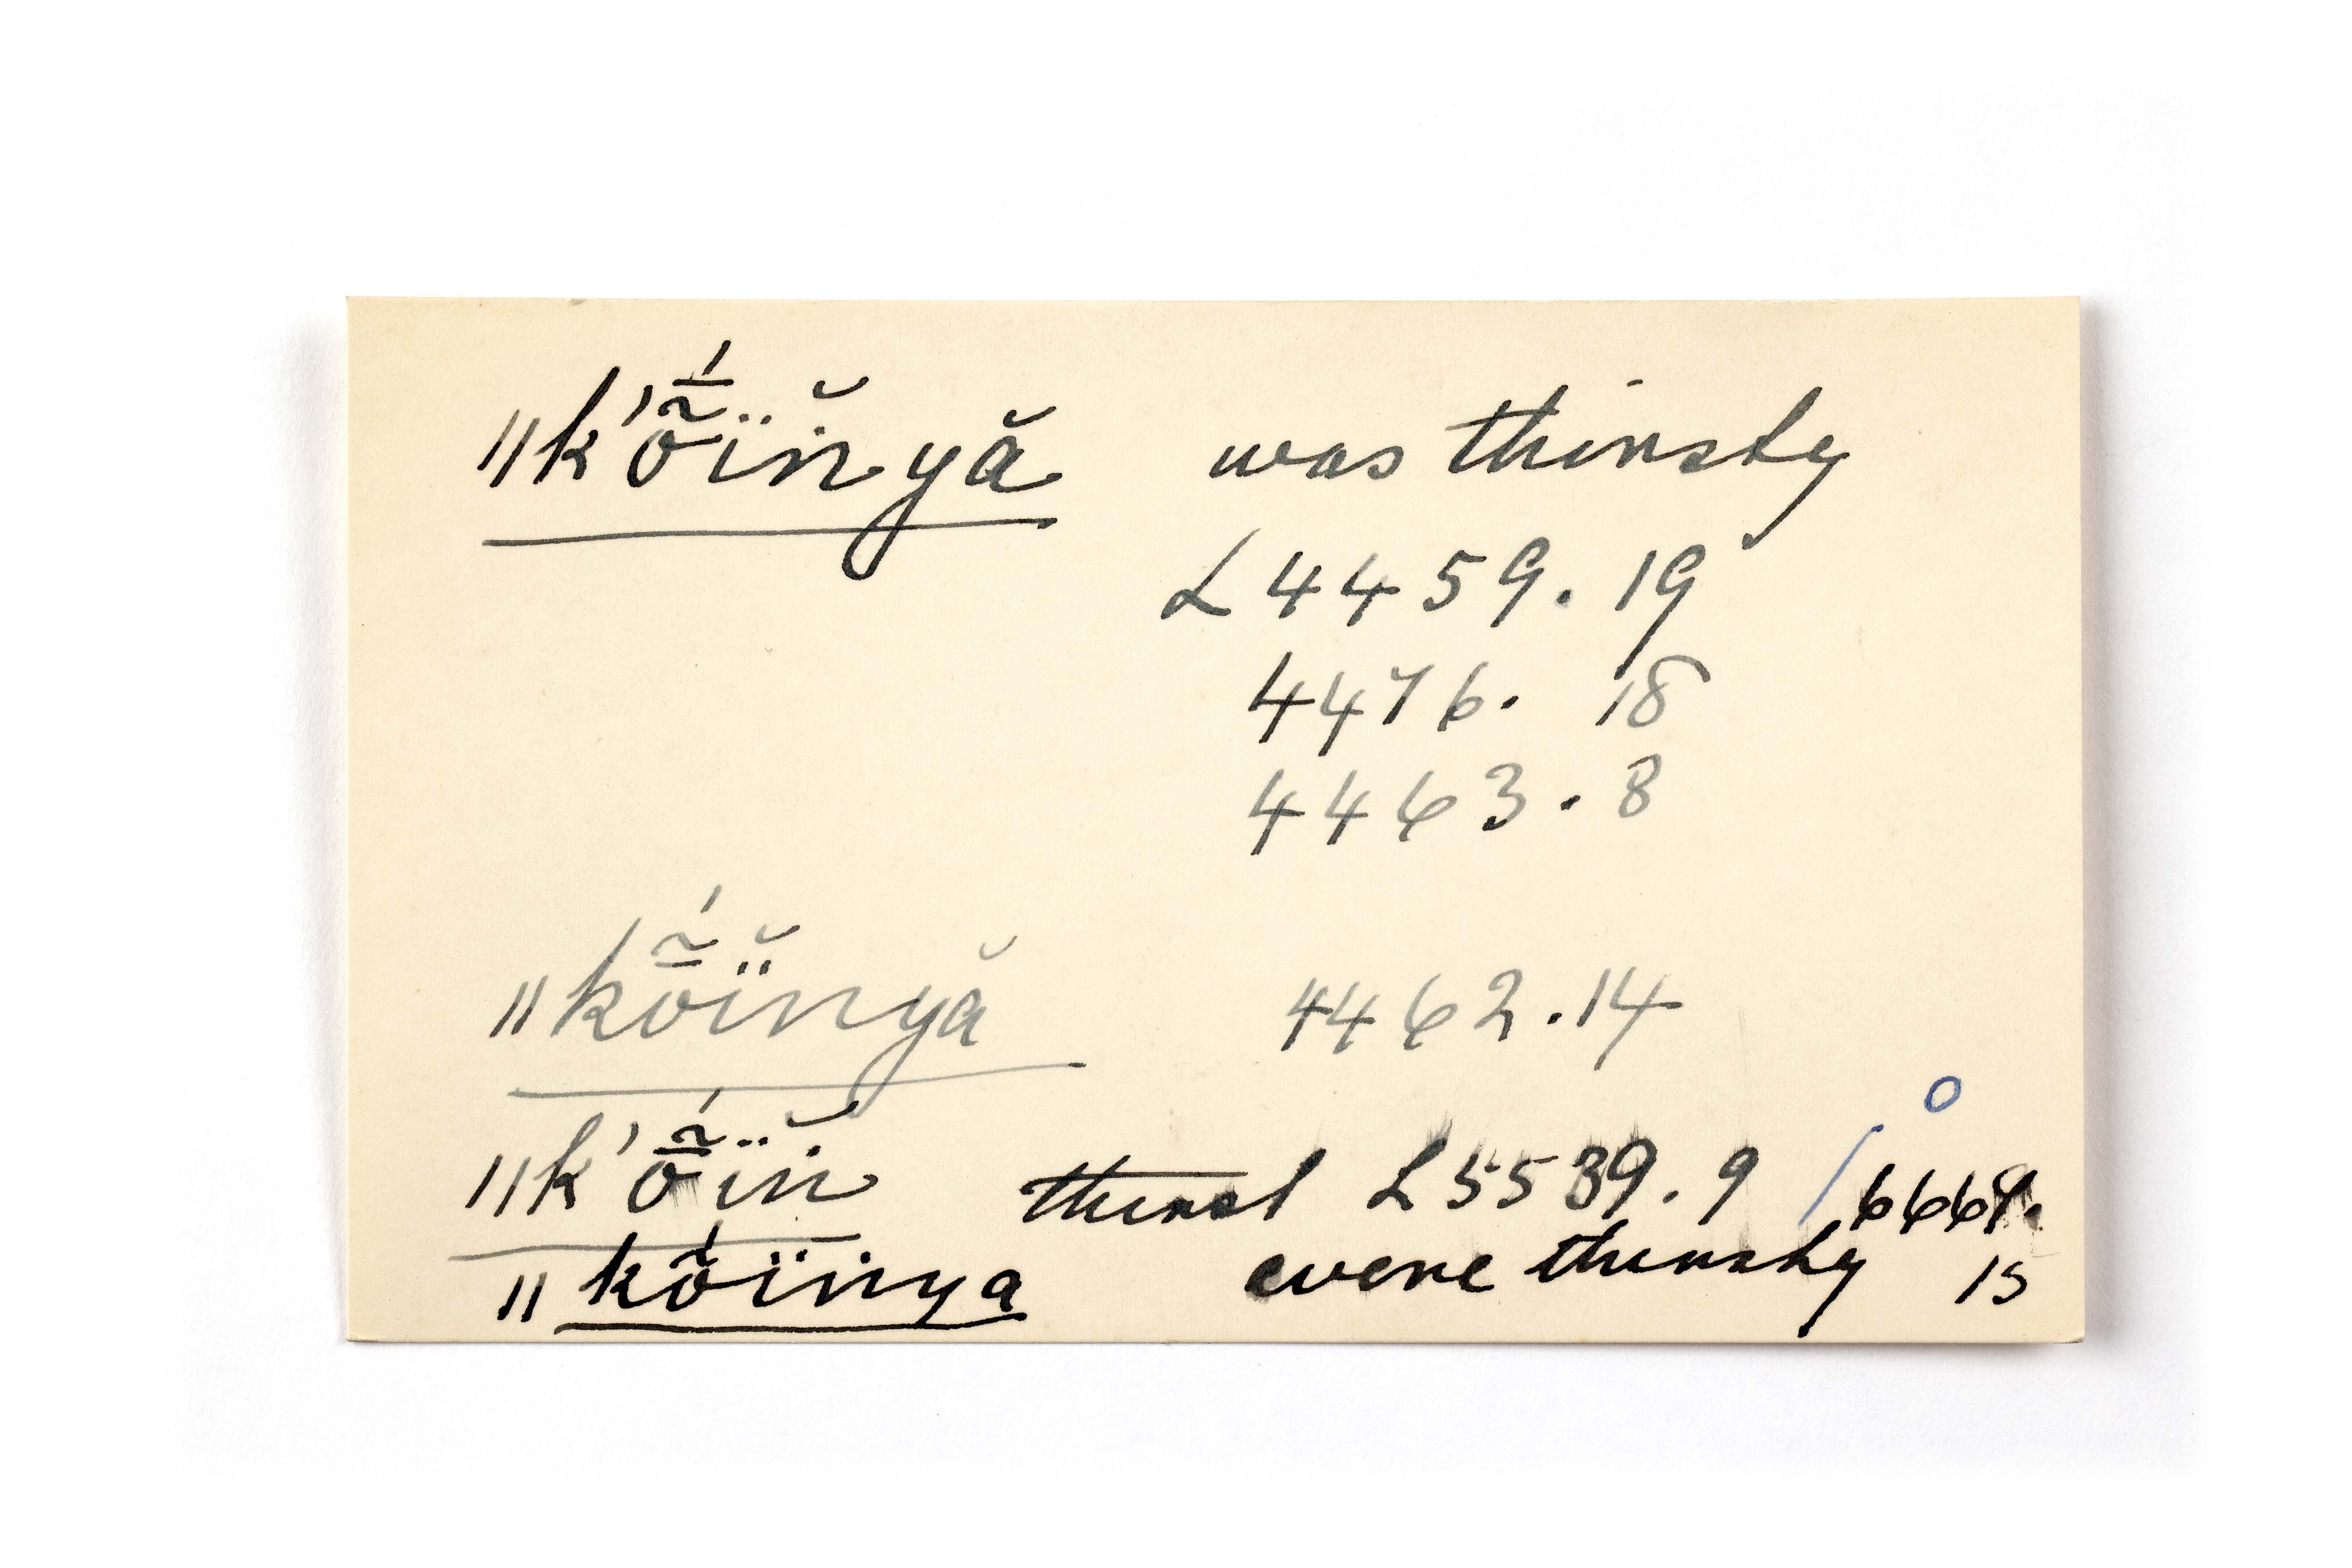 ǁk'ṓ̃ïṅ̆yă was thirsty
L 4459. 19
4476. 18
4463. 8
ǁkṓ̃ï̆nyă 4462. 14
o
ǁk'ṓ̃ïṅ̆ thirst L 5539. 9 / 6664.
ǁkṓïṅya were thirsty 15